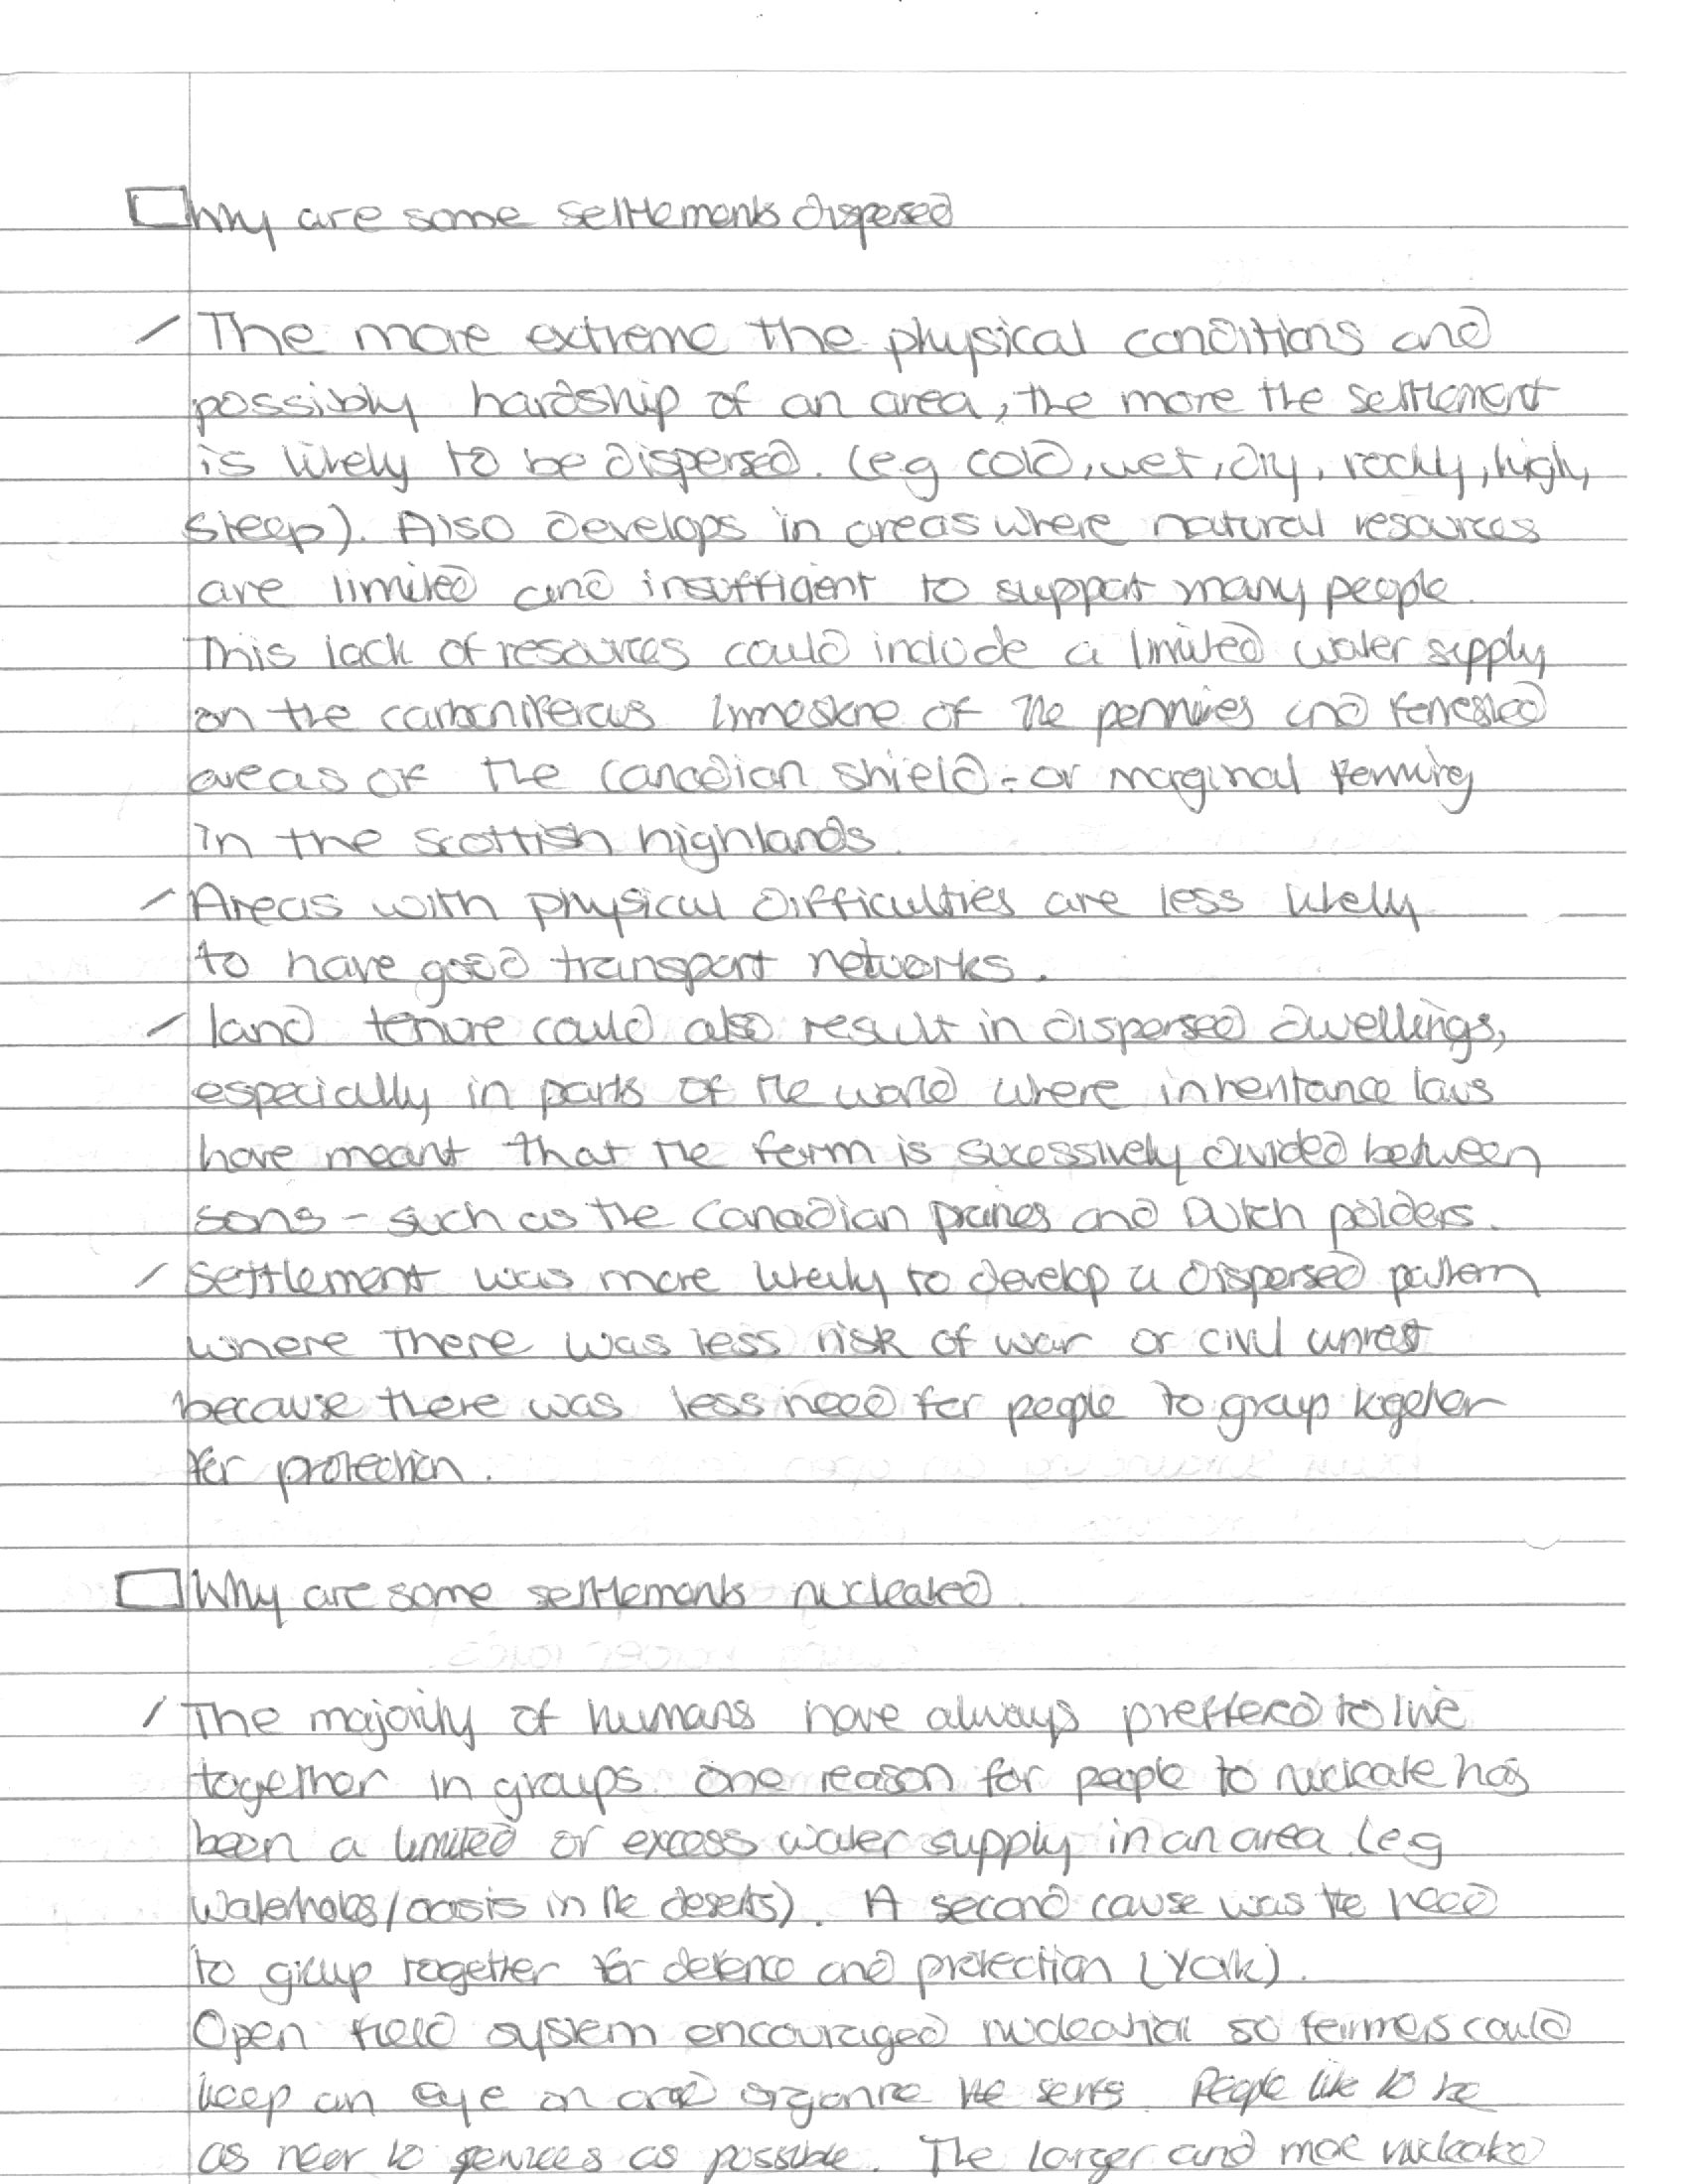 Why are some settlements dispersed
The more extreme the physical conditions and
possibly hardship of an area, the more the settlement
is likely to be dispersed. (eg cold, wet, dry, rocky, high,
steep). Also develops in areas where natural resources
are limited and insufficient to support many people.
This lack of resources could include a limited water supply
on the carboniferous limestone of the pennines and
areas of the Canadian shield - or marginal farming
in the scottish highlands.
Areas with physical difficulties are less likely
to have good transport networks.
land tenure could also result in dispersed dwellings,
especially in parts of the world where inheritance laws
have meant that the farm is sucessively divided between
sons - such as the Canadian prairies and Dutch polders.
Settlement was more likely to develop a dispersed pattern
where there was less risk of war or civil unrest
because there was less need for people to group together
for protection.
Why are some settlements nucleated.
The majority of humans have always preffered to live
together in groups. One reason for people to nucleate has
been a limited or excess water supply in an area (eg
Waterholes/oasis in the deserts). A second cause was the need
to group together for defence and protection (York).
Open field system encouraged nucleation so farmers could
keep an eye on and organise the serfs. People like to be
as near to services as possible. The larger and more nucleated